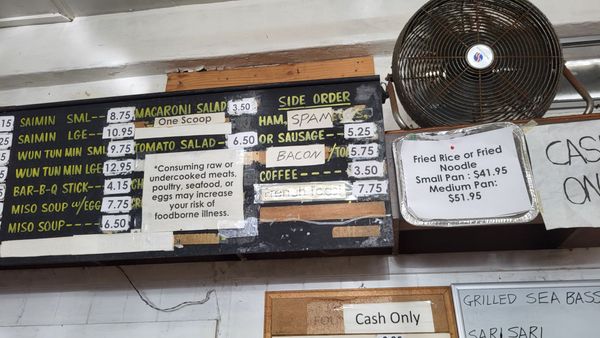 SAIMIN SML-- 8.75
SAIMIN LGE-- 10.95
WUN TUN MIN SML 9.75
WUN TUN MIN LGE 12.95
BAR-B-Q STICK-- 4.15
MISO SOUP W/EGG 7.75
MISO SOUP---- 6.50
MACARONI SALAD 3.50
One Scoop
TOMATO SALAD- 6.50
*Consuming raw or
undercooked meats,
poultry, seafood, or
eggs may increase
your risk of
foodborne illness.
SIDE ORDER
HAM, SPAM
OR SAUSAGE-- 5.25
BACON 5.75
COFFEE---- 3.50
7.75
Fried Rice or Fried
Noodle
Small Pan : $41.95
Medium Pan:
$51.95
CAS
ON
Cash Only
GRILLED SEA BASS
SARI SARI